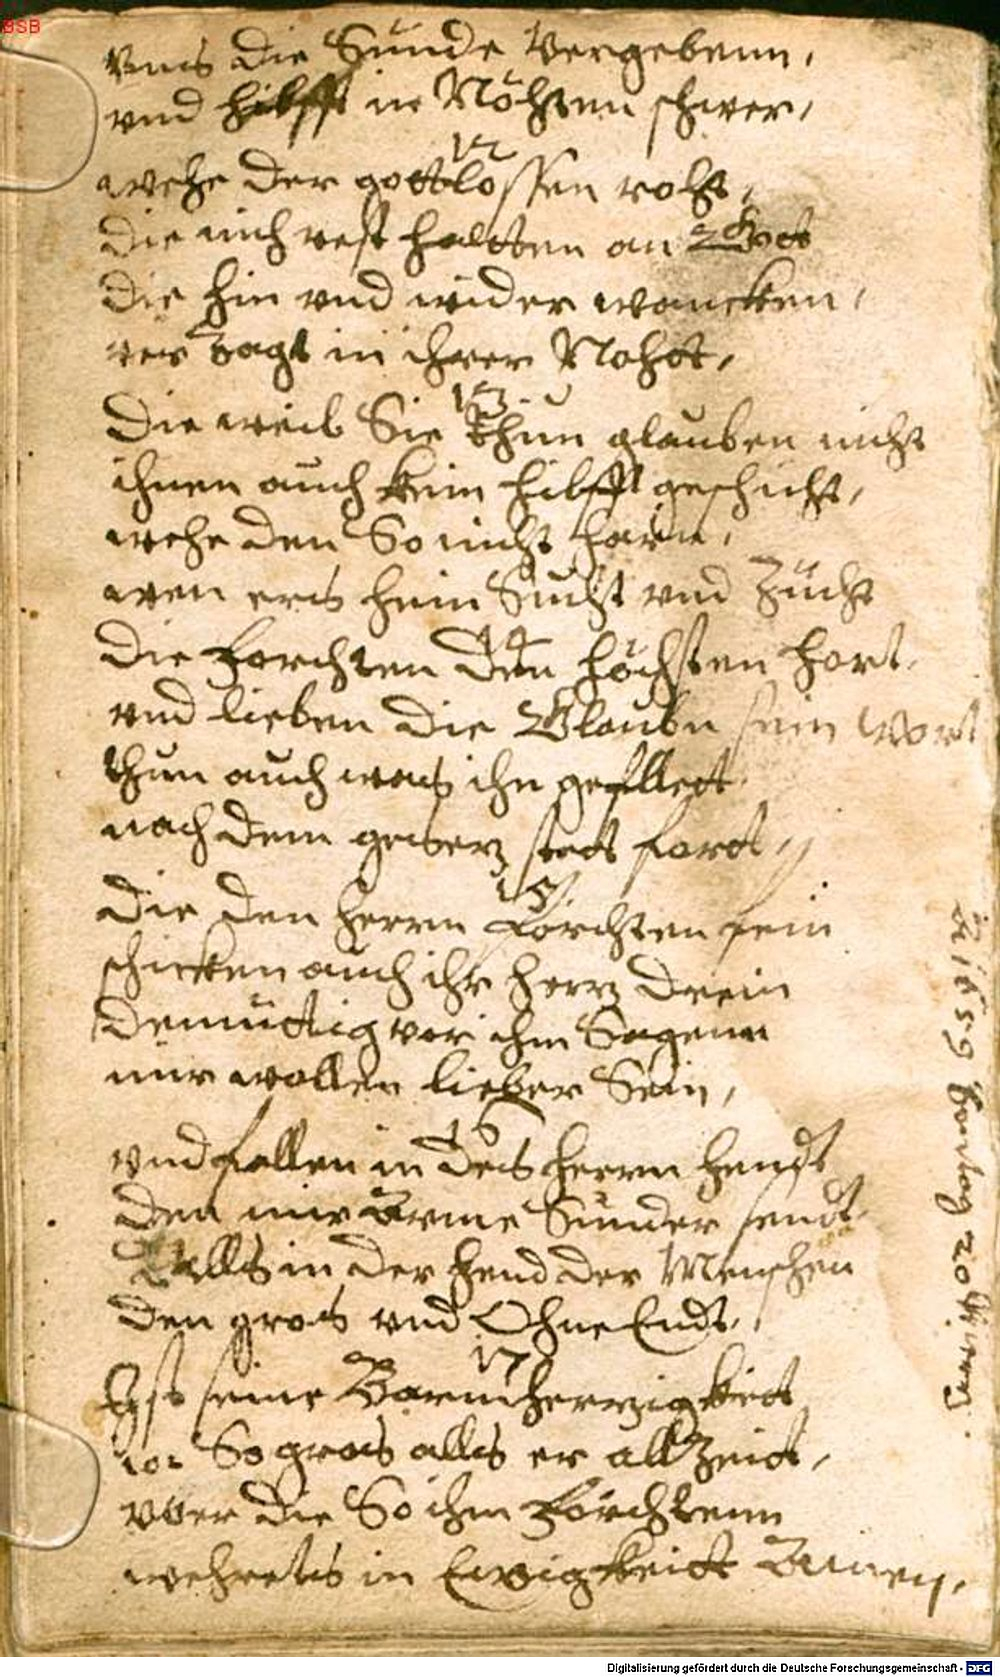 BSB
Vnns die Sünde Vergebenn,
vnd hilfft in Nöhten schwer,
12
wehe der gottlossen rott,
die nich vest haltten an Gott
die hin vnd wider wancken,
ver Zagt in ihrer Nohtt,
13.
Die weil Sie thun glauben nicht
ihnen auch kein hilfft geschicht,
wehe den So nicht harn,
wen ers heim Sucht vnd Zücht
14
Die forchten den höchsten hort.
vnd lieben die Glaubn sein wort
thun auch was ihn gefllett
nach dem gesetz stets fortt,
15
Die den herrn förchten fein
schicken auch ihr hertz drein
demüttig vor ihm Sagenn
mir wollen lieber Sein,
16
vnd fallen in des herrn hendt
den mir Arme Sünder sendt.
alls in der hend der Menschen
den gros vnd Ohne Endt,
17
Ist seine Barmhertzigkeit
So gros alls er all Zeitt,
vber die So ihm förchtenn
wehret es in Ewigkeitt Amen,
1659 20
Digitalisierung gefördert durch die Deutsche Forschungsgemeinschaft - DFG